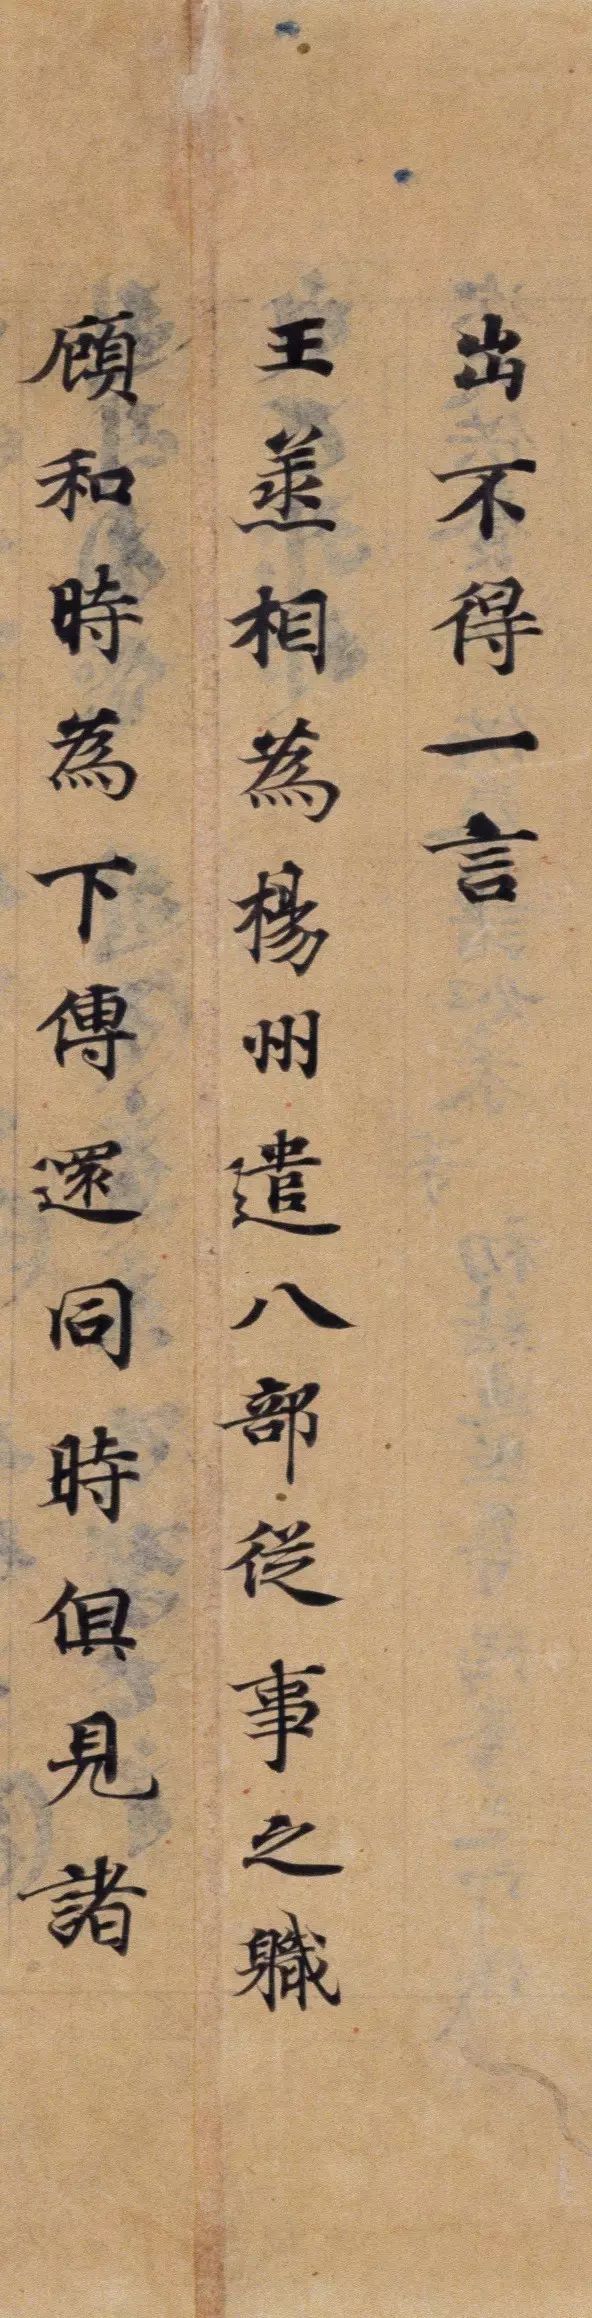 出不得一言
王丞相為楊州遣八部從事之職
顧和時為下傳還同時俱見諸